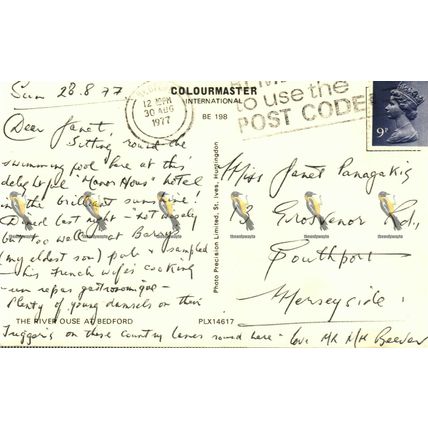 Sun 28.8.77
12 30PM
30 AUG
1977
COLOURMASTER
INTERNATIONAL
BE 198
to use the
POST CODE
9P
Dear Janet,
Sitting round the
swimming pool here at this
delightful "Manor House" hotel
in the brilliant sunshine.
Dined last night – not wisely
but too well – at Barry's
(my eldest son) pub & sampled
his French wife's cooking
un repas gastronomique –
Plenty of young damsels on their
on these country lanes round here – love Mr
Miss Janet Panagakis
3
Grosvenor Rd,
Southport
Merseyside.
Photo Precision Limited, St. Ives, Huntingdon
THE RIVER OUSE AT BEDFORD
PLX14617